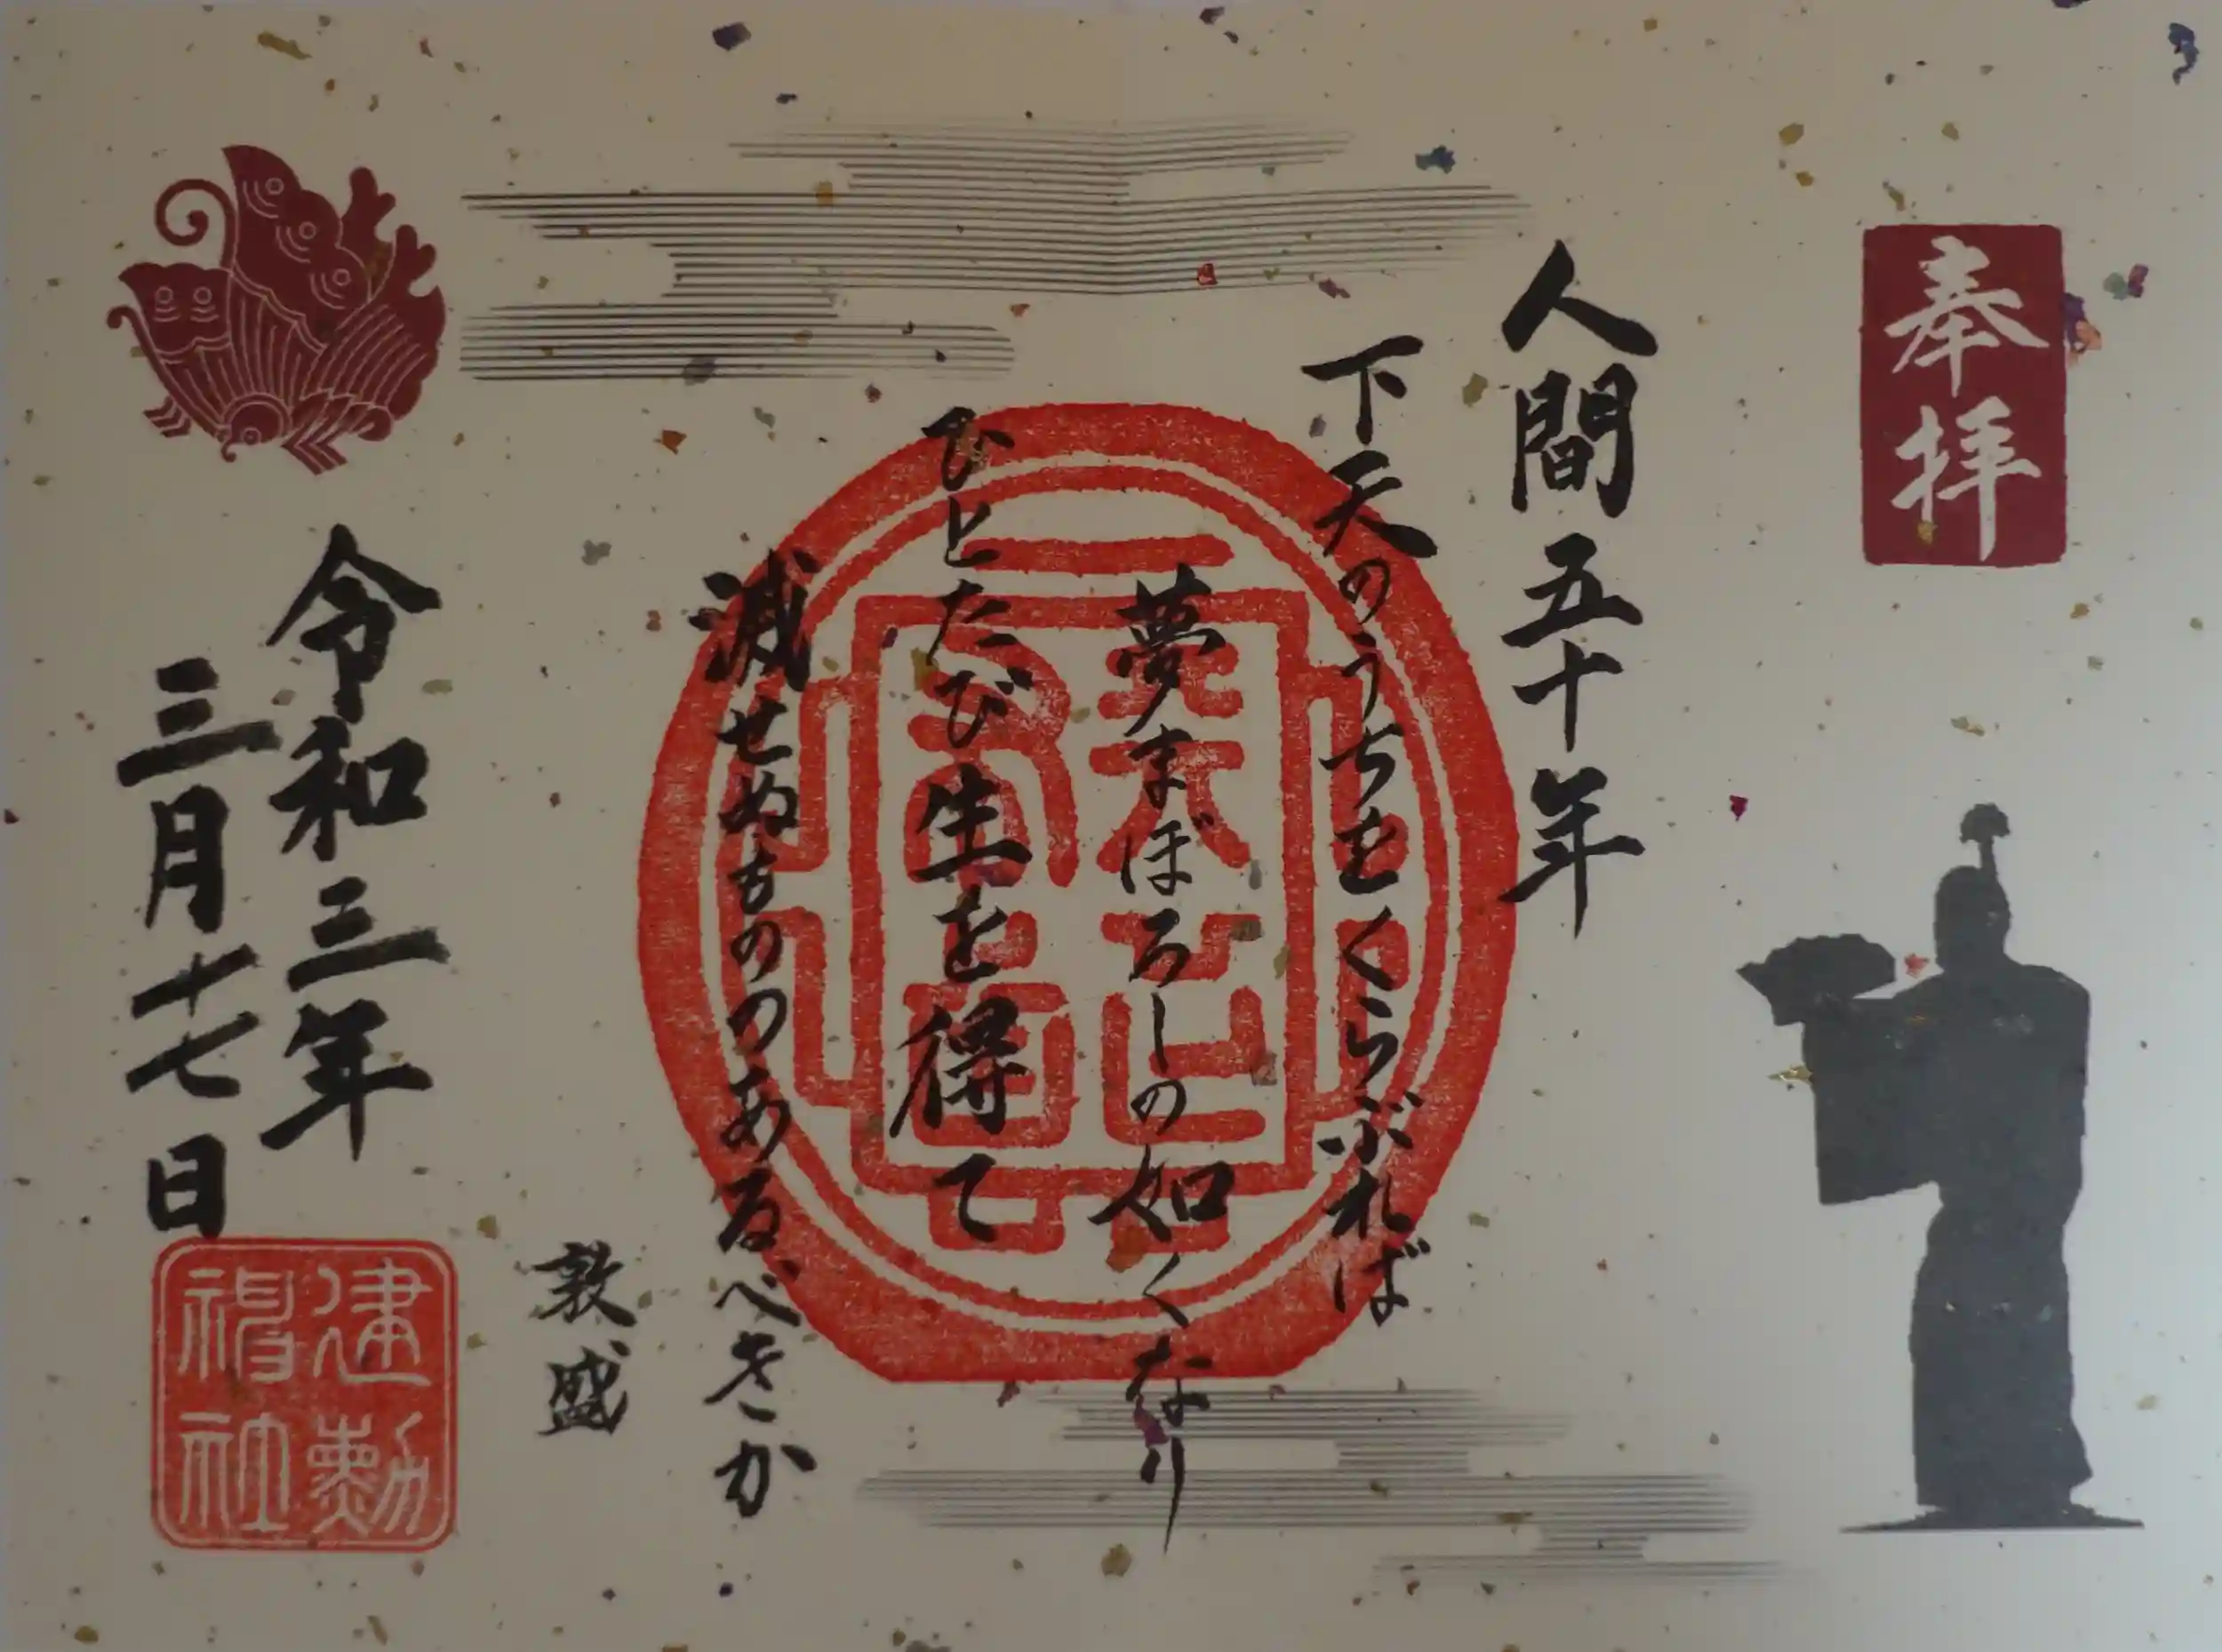 奉拝
人間五十年
下天のうちをくらぶれば
夢まぼろしの如くなり
ひとたび生を得て
滅せぬもののあるべきか
敦盛
令和三年
三月十七日
建勲
神社
天下
布武